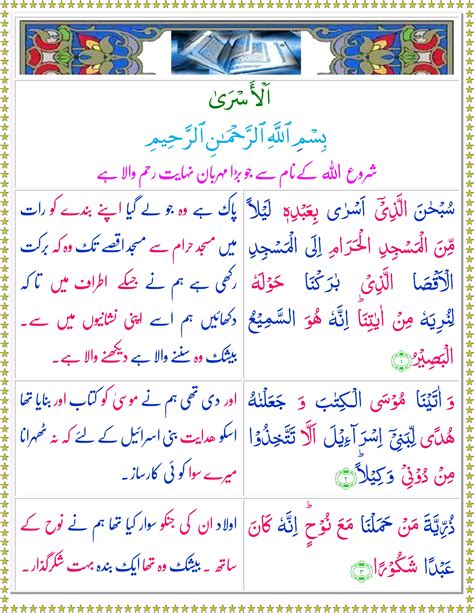 اَلْأَسْرَىٰ
بِسْمِ ٱللَّهِ ٱلرَّحْمَـٰنِ ٱلرَّحِيمِ
شروع اللہ کے نام سے جو بڑا مہربان نہایت رحم والا ہے
سُبْحٰنَ الَّذِیْۤ اَسْرٰی بِعَبْدِہٖ لَیْلًا
مِّنَ الْمَسْجِدِ الْحَرَامِ اِلَی الْمَسْجِدِ
الْاَقْصَا الَّذِیْ بٰرَکْنَا حَوْلَہٗ
لِنُرِیَہٗ مِنْ اٰیٰتِنَاؕ اِنَّہٗ ھُوَ السَّمِیْعُ
الْبَصِیْرُ ﴿۱﴾
پاک ہے وہ جو لے گیا اپنے بندے کو رات
میں مسجد حرام سے مسجد اقصٰے تک وہ کہ برکت
رکھی ہے ہم نے جسکے اطراف میں تا کہ
دکھائیں ہم اسے اپنی نشانیوں میں سے۔
بیشک وہ سننے والا ہے دیکھنے والا ہے۔
وَ اٰتَیْنَا مُوْسَی الْکِتٰبَ وَ جَعَلْنٰہُ
ھُدًی لِّبَنِیْۤ اِسْرَآءِیْلَ اَلَّا تَتَّخِذُوْا
مِنْ دُوْنِیْ وَکِیْلًاؕ ﴿۲﴾
اور دی تھی ہم نے موسیٰ کو کتاب اور بنایا تھا
اسکو ھدایت بنی اسرائیل کے لئے کہ نہ ٹھہرانا
میرے سوا کوئی کارساز۔
ذُرِّیَّۃَ مَنْ حَمَلْنَا مَعَ نُوْحٍؕ اِنَّہٗ کَانَ
عَبْدًا شَکُوْرًا ﴿۳﴾
اولاد ان کی جنکو سوار کیا تھا ہم نے نوح کے
ساتھ ۔ بیشک وہ تھا ایک بندہ بہت شکرگذار۔